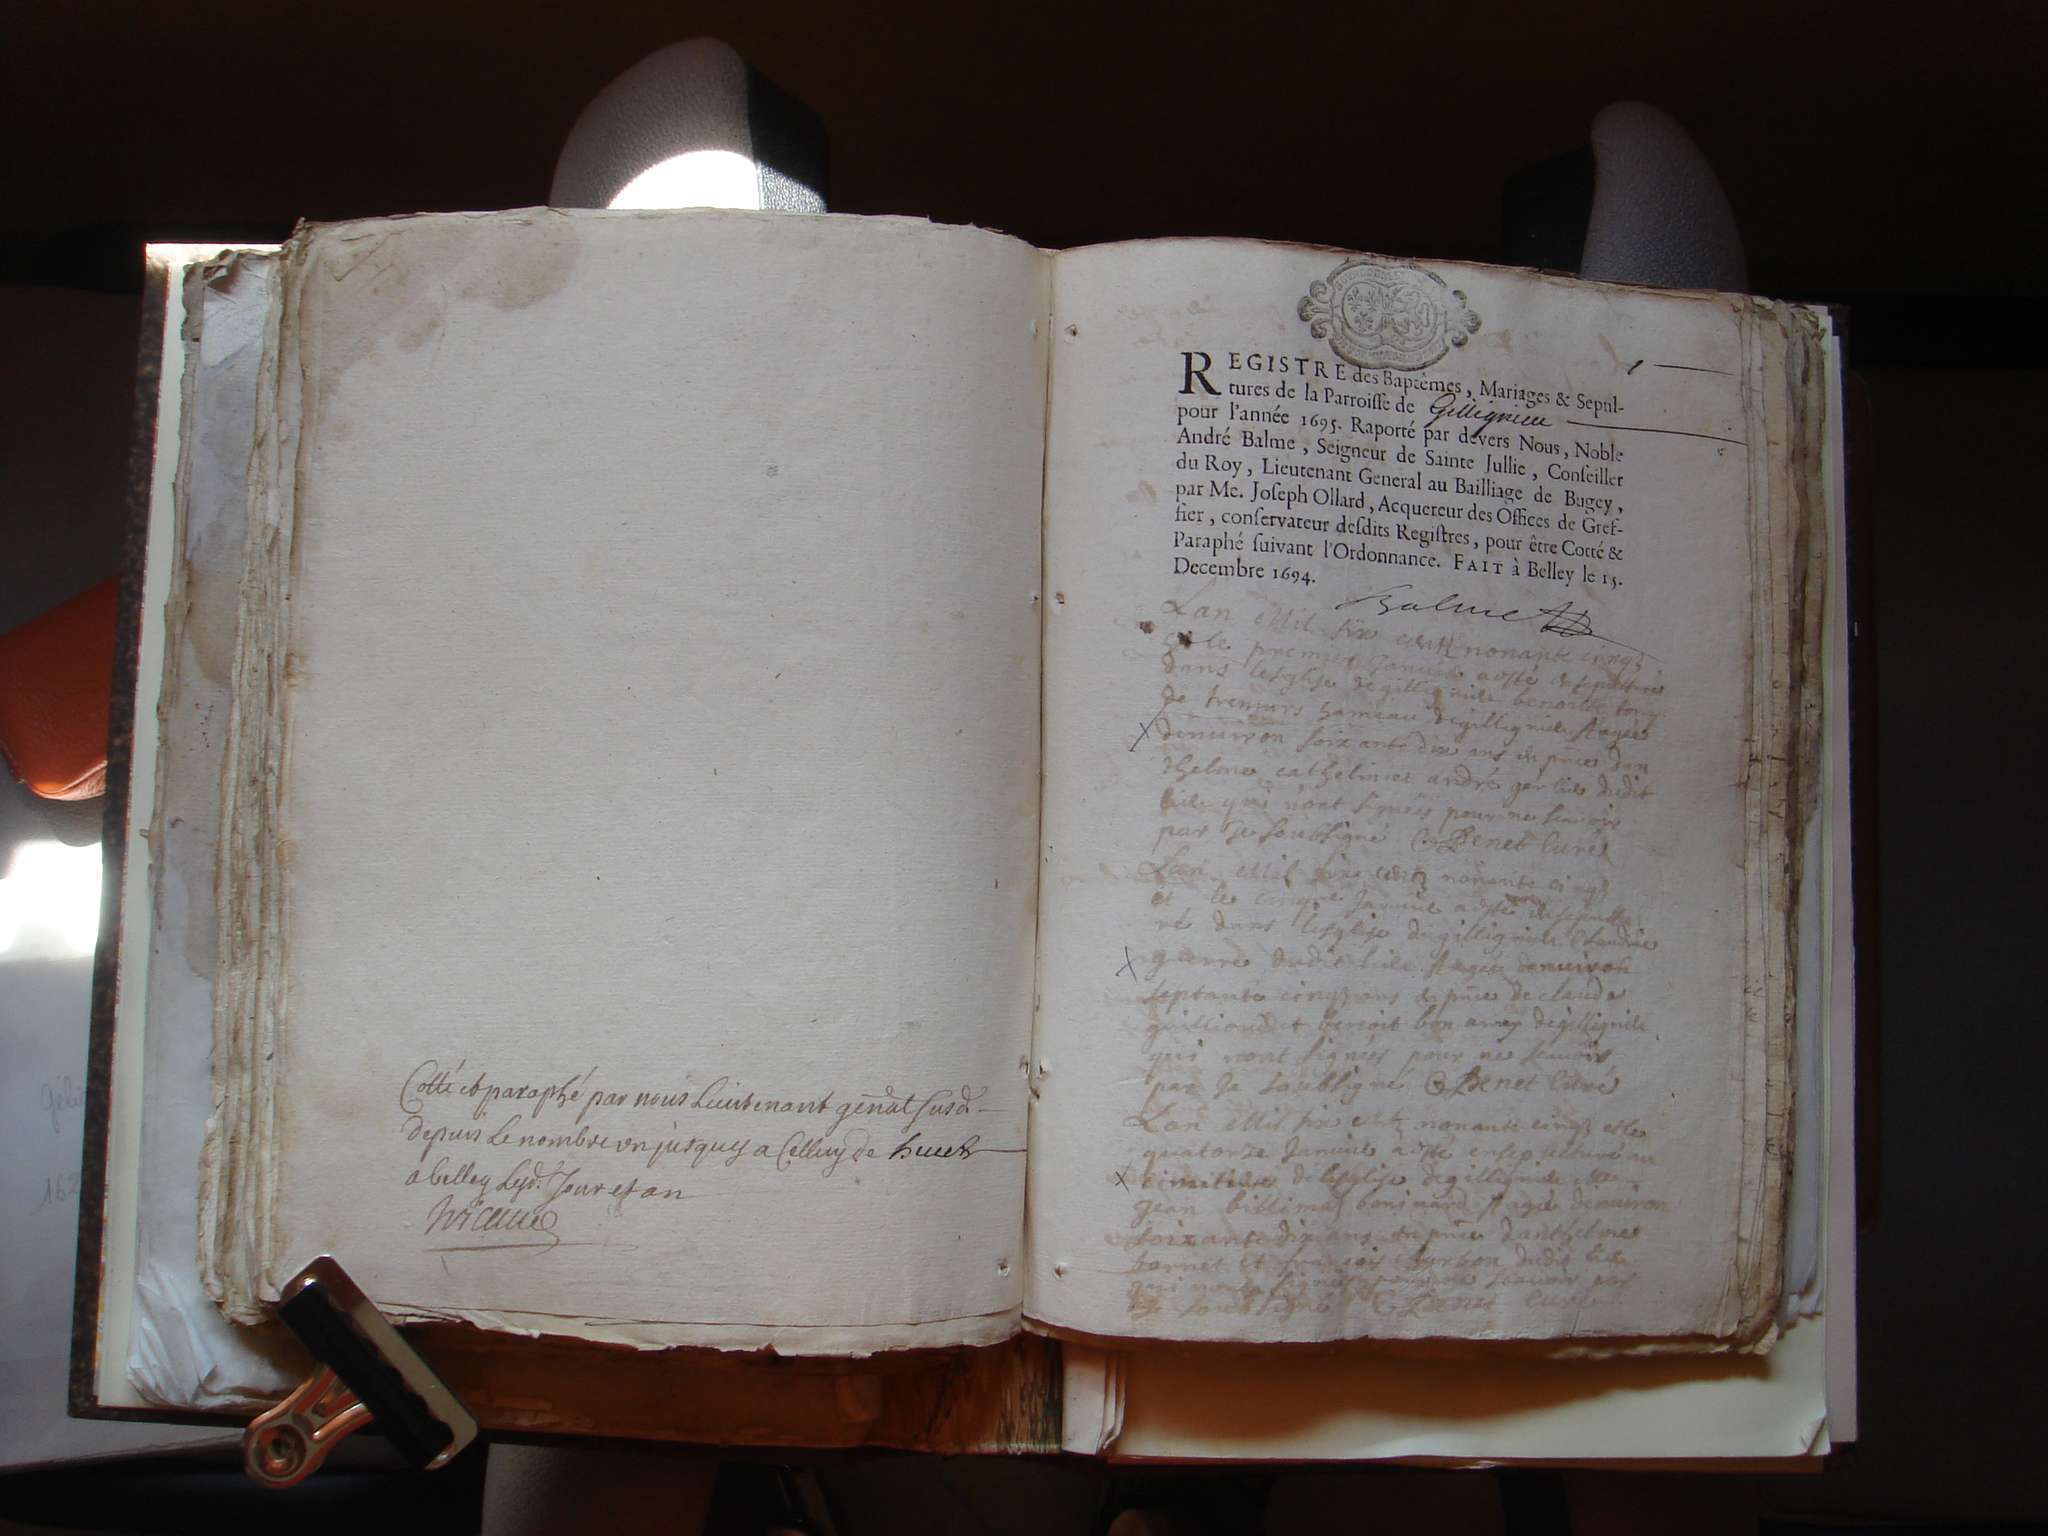 Cotté et paraphé par nous Lieutenant genãl susd.
depuis le nombre un jusques a Celluy de huict
a belley lesd. Jour et an
1
REGISTRE des Baptêmes, Mariages & Sepul-
tures de la Parroisse de Gillignieu
pour l'année 1695. Raporté par devers Nous, Noble
André Balme, Seigneur de Sainte Jullie, Conseiller
du Roy, Lieutenant General au Bailliage de Bugey,
par Me. Joseph Ollard, Acquereur des Offices de Gref-
fier, conservateur desdits Registres, pour être Cotté &
Paraphé suivant l'Ordonnance. FAIT à Belley le 15.
Decembre 1694.
Balme
Lan Mil six cent nonante cinq
et le premier Janvier a esté
dans lesglise de gillignieu benoite
de hameau de gillignieu Aagée
denuiron soixante dix ans en pñce dan
thelme et andré dudit
lieu qui n'ont signées pour ne scauoir
par Je soubsigné Benet Curé
Lan Mil six cent nonante cinq
et le Janvier a esté ensepultu
ré dans lesglise de gillignieu Claudine
guerre dudit lieu Aagée denuiron
septante cinq ans en pñce de claude
et benoit de gillignieu
qui n'ont signées pour ne scauoir
par Je soubsigné Benet Curé
Lan Mil six cent nonante cinq et le
quatorze Janvier a esté ensepulturé au
cimitiere de lesglise de gillignieu
Jean Aagé denuiron
soixante dix ans en pñce danthelme
bornet et françois dudit lieu
qui n'ont signées pour ne scauoir par
Je soubsigné Benet curé